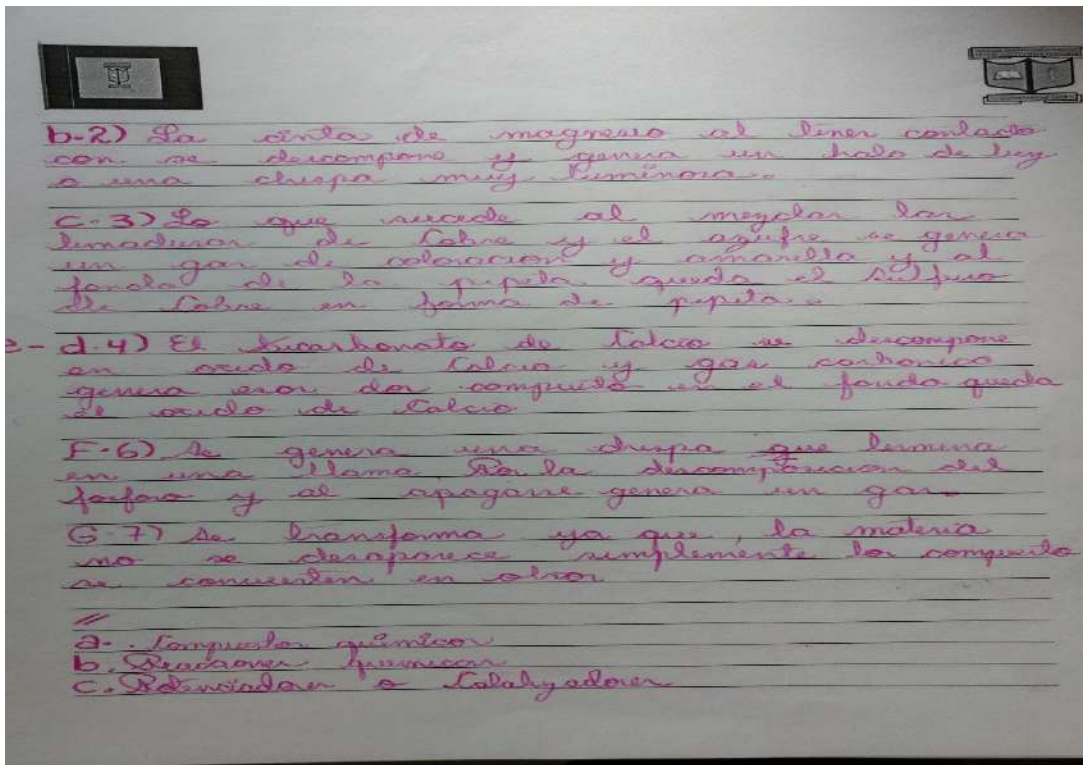 b-2) La cinta de magnesio al tener contacto
con se descompone y genera un halo de luz
o una chispa muy luminosa.
C-3) Lo que sucede al mezclar las
limaduras de Cobre y el azufre se genera
un gas de coloracion y amarilla y al
fondo de la pipeta queda el sulfuro
de Cobre en forma de pepita.
d.4) El bicarbonato de Calcio se descompone
en oxido de Calcio y gas carbonico
genera esos dos compuesto en el fondo queda
el oxido de Calcio
F-6) Se genera una chispa que termina
en una llama la descomposicion del
fosforo y al apagarse genera un gas.
G-7) Se transforma ya que, la materia
no se desaparece simplemente los compuesto
se convierten en otros
//
a-. Compuestos químicos
b. Reacciones quimicas
c. Potenciadores o Catalyzadores